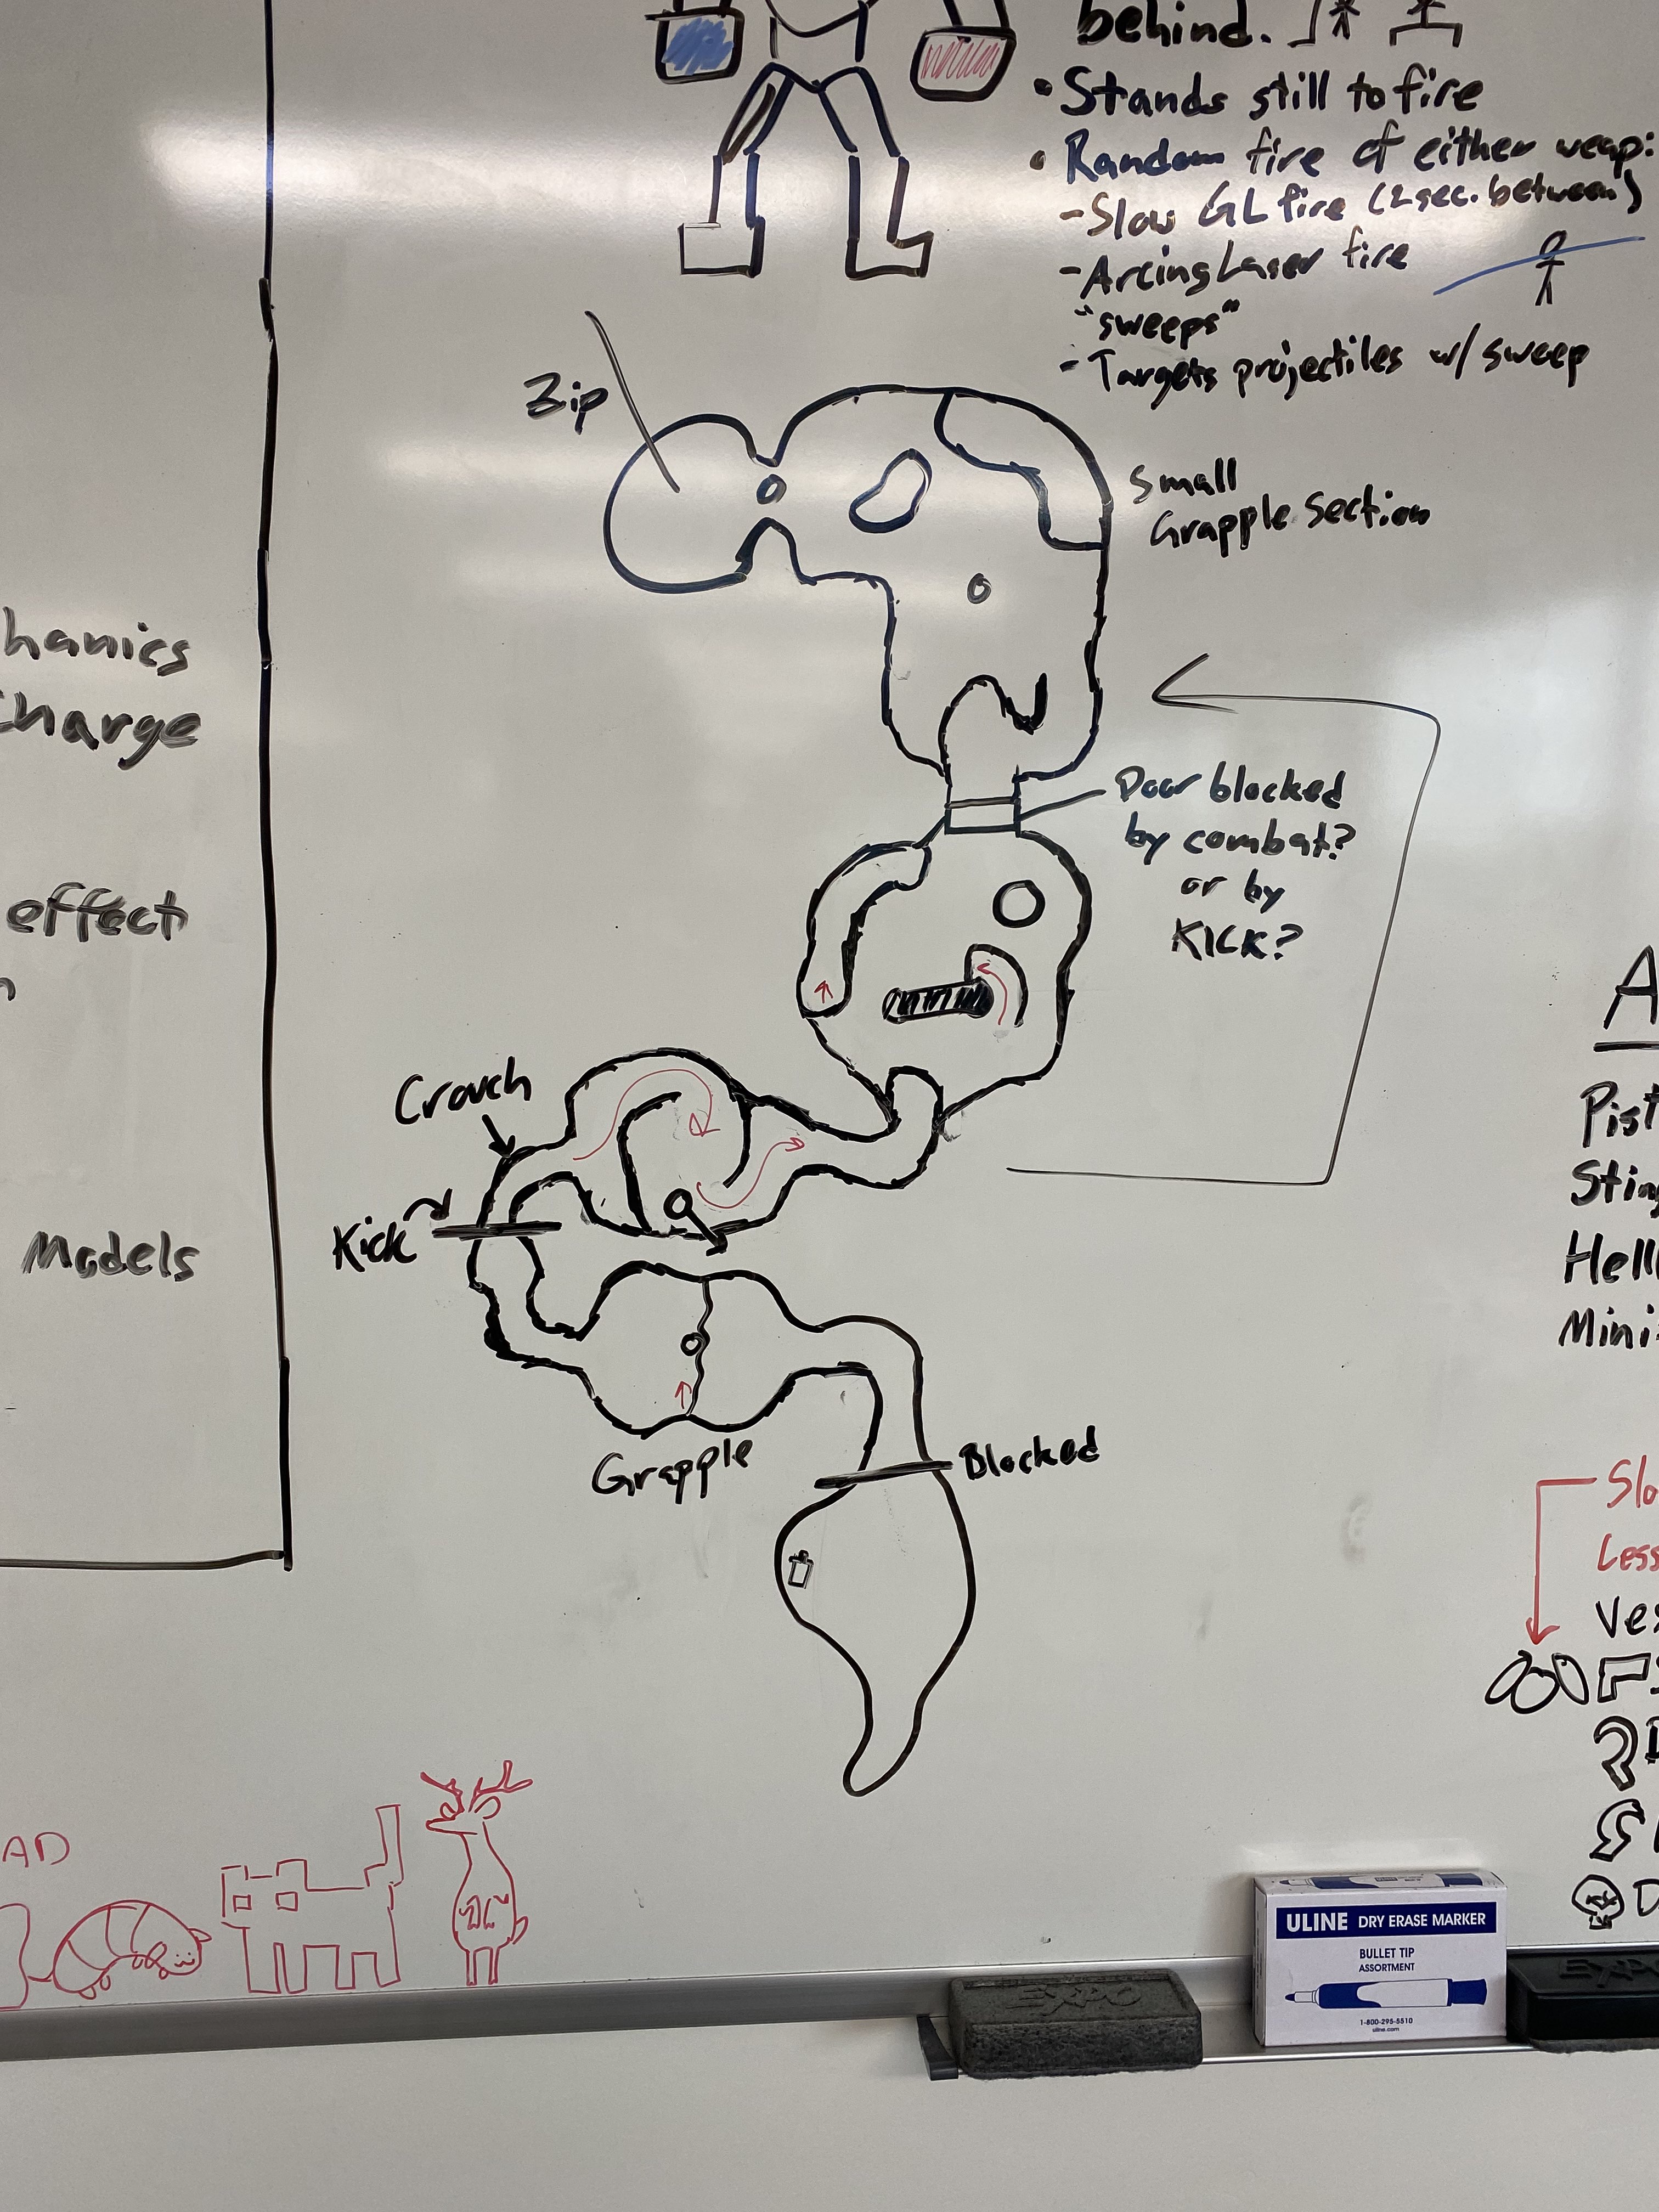 behind.
• Stands still to fire
• Random fire of either weap:
- Slow GL fire (2sec. between)
- Arcing Laser fire
"sweeps"
- Targets projectiles w/ sweep
Zip
Small
Grapple Section
hanics
Charge
Door blocked
by combat?
or by
KICK?
effect
n
Crouch
Kick
Models
Grapple
Blocked
A
Pist
Sting
Hell
Mini
Slo
Less
Ves
D
AD
EXPO
ULINE DRY ERASE MARKER
BULLET TIP
ASSORTMENT
1-800-295-5510
uline.com
EXPO